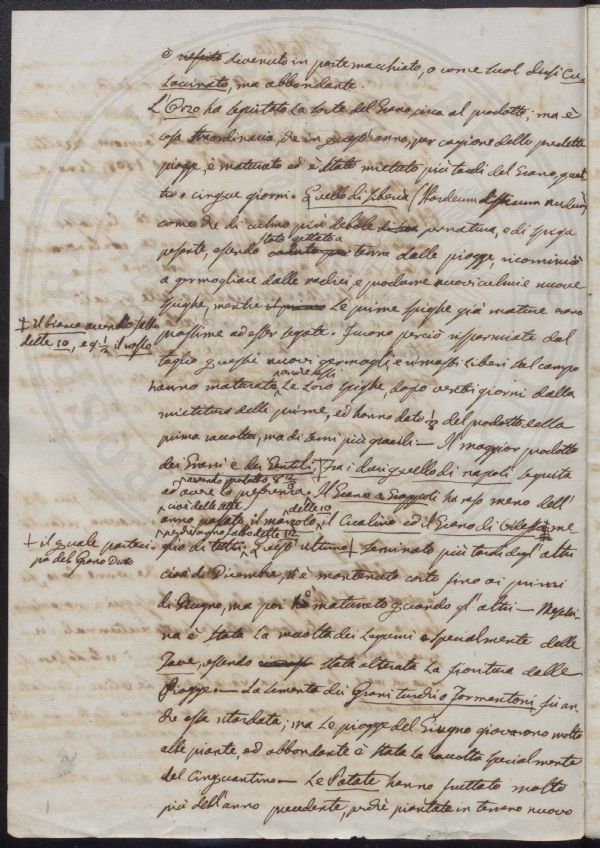 è divenuto in parte macchiato, o come suol dirsi
, ma abbondante.
L'Orzo ha seguitato la sorte del Grano, circa al prodotto; ma è
cosa straordinaria, che in quest'anno, per cagione delle predette
piogge, è maturato ed è stato mietuto più tardi del Grano, quat
tro o cinque giorni. Quello di Siberia (Hordeum
come che di culmo più debole per natura, e di spiga
pesante, essendo stato gettato a terra dalle piogge, ricominciò
a germogliare dalle radici, e produrre nuovi culmi e nuove
spighe, mentre le prime spighe già mature erano
prossime ad esser segate. Furono perciò risparmiate dal
+ il bianco
delle 10, e 9 ½ il rosso
taglio questi nuovi germogli, e rimasti liberi sul campo
hanno maturate le loro spighe, dopo venti giorni dalla
mietitura delle prime, ed hanno dato del prodotto della
prima raccolta, ma di semi più gracili - Il maggior prodotto
dei Grani è dei Gentili, + fra i quello di napoli seguita
ad avere la preferenza. Il Grano a Grappoli ha reso meno dell'
avendo portato
cioè delle
anno passato, il marzolo, il Cicalino ed il Grano di me
delle 10
glio di tutti; quest'ultimo + seminato più tardi degl'altri
+ il quale parteci
pa del Grano Duro
cioè di Dicembre, si è mantenuto corto fino ai primi
di Giugno, ma poi ha maturato quando gl'altri - Meschi
na è stata la raccolta dei Legumi specialmente delle
Fave, essendo stata alterata la fioritura dalle
Piogge. - La sementa dei Grani turchi o Formentoni fu an
che essa ritardata; ma le piogge del Giugno giovarono molto
alle piante, ed abbondante è stata la raccolta specialmente
del Cinquantino - Le Patate hanno fruttato molto
più dell'anno precedente, perchè piantate in terreno nuovo